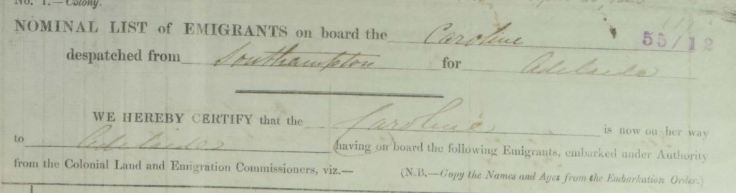 No. 1.—Colony.
NOMINAL LIST of EMIGRANTS on board the Caroline 55/12
despatched from Southampton for Adelaide
WE HEREBY CERTIFY that the Caroline is now on her way
to Adelaide having on board the following Emigrants, embarked under Authority
from the Colonial Land and Emigration Commissioners, viz.— (N.B.—Copy the Names and Ages from the Embarkation Order.)